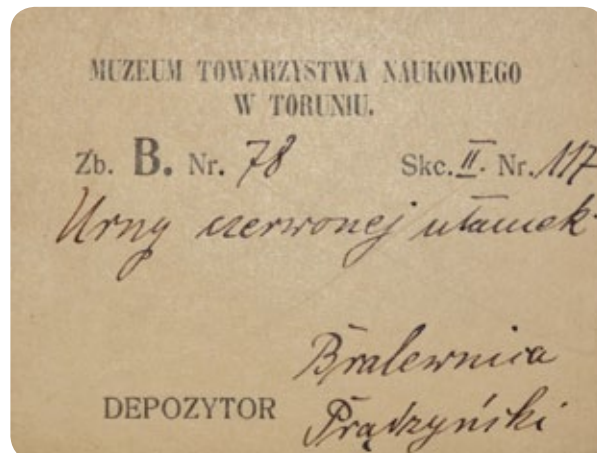 MUZEUM TOWARZYSTWA NAUKOWEGO
W TORUNIU.
Zb. B. Nr. 78 Skc. II. Nr. 117
Urny czerwonej ułamek
Bralewnica
DEPOZYTOR Prądzyński